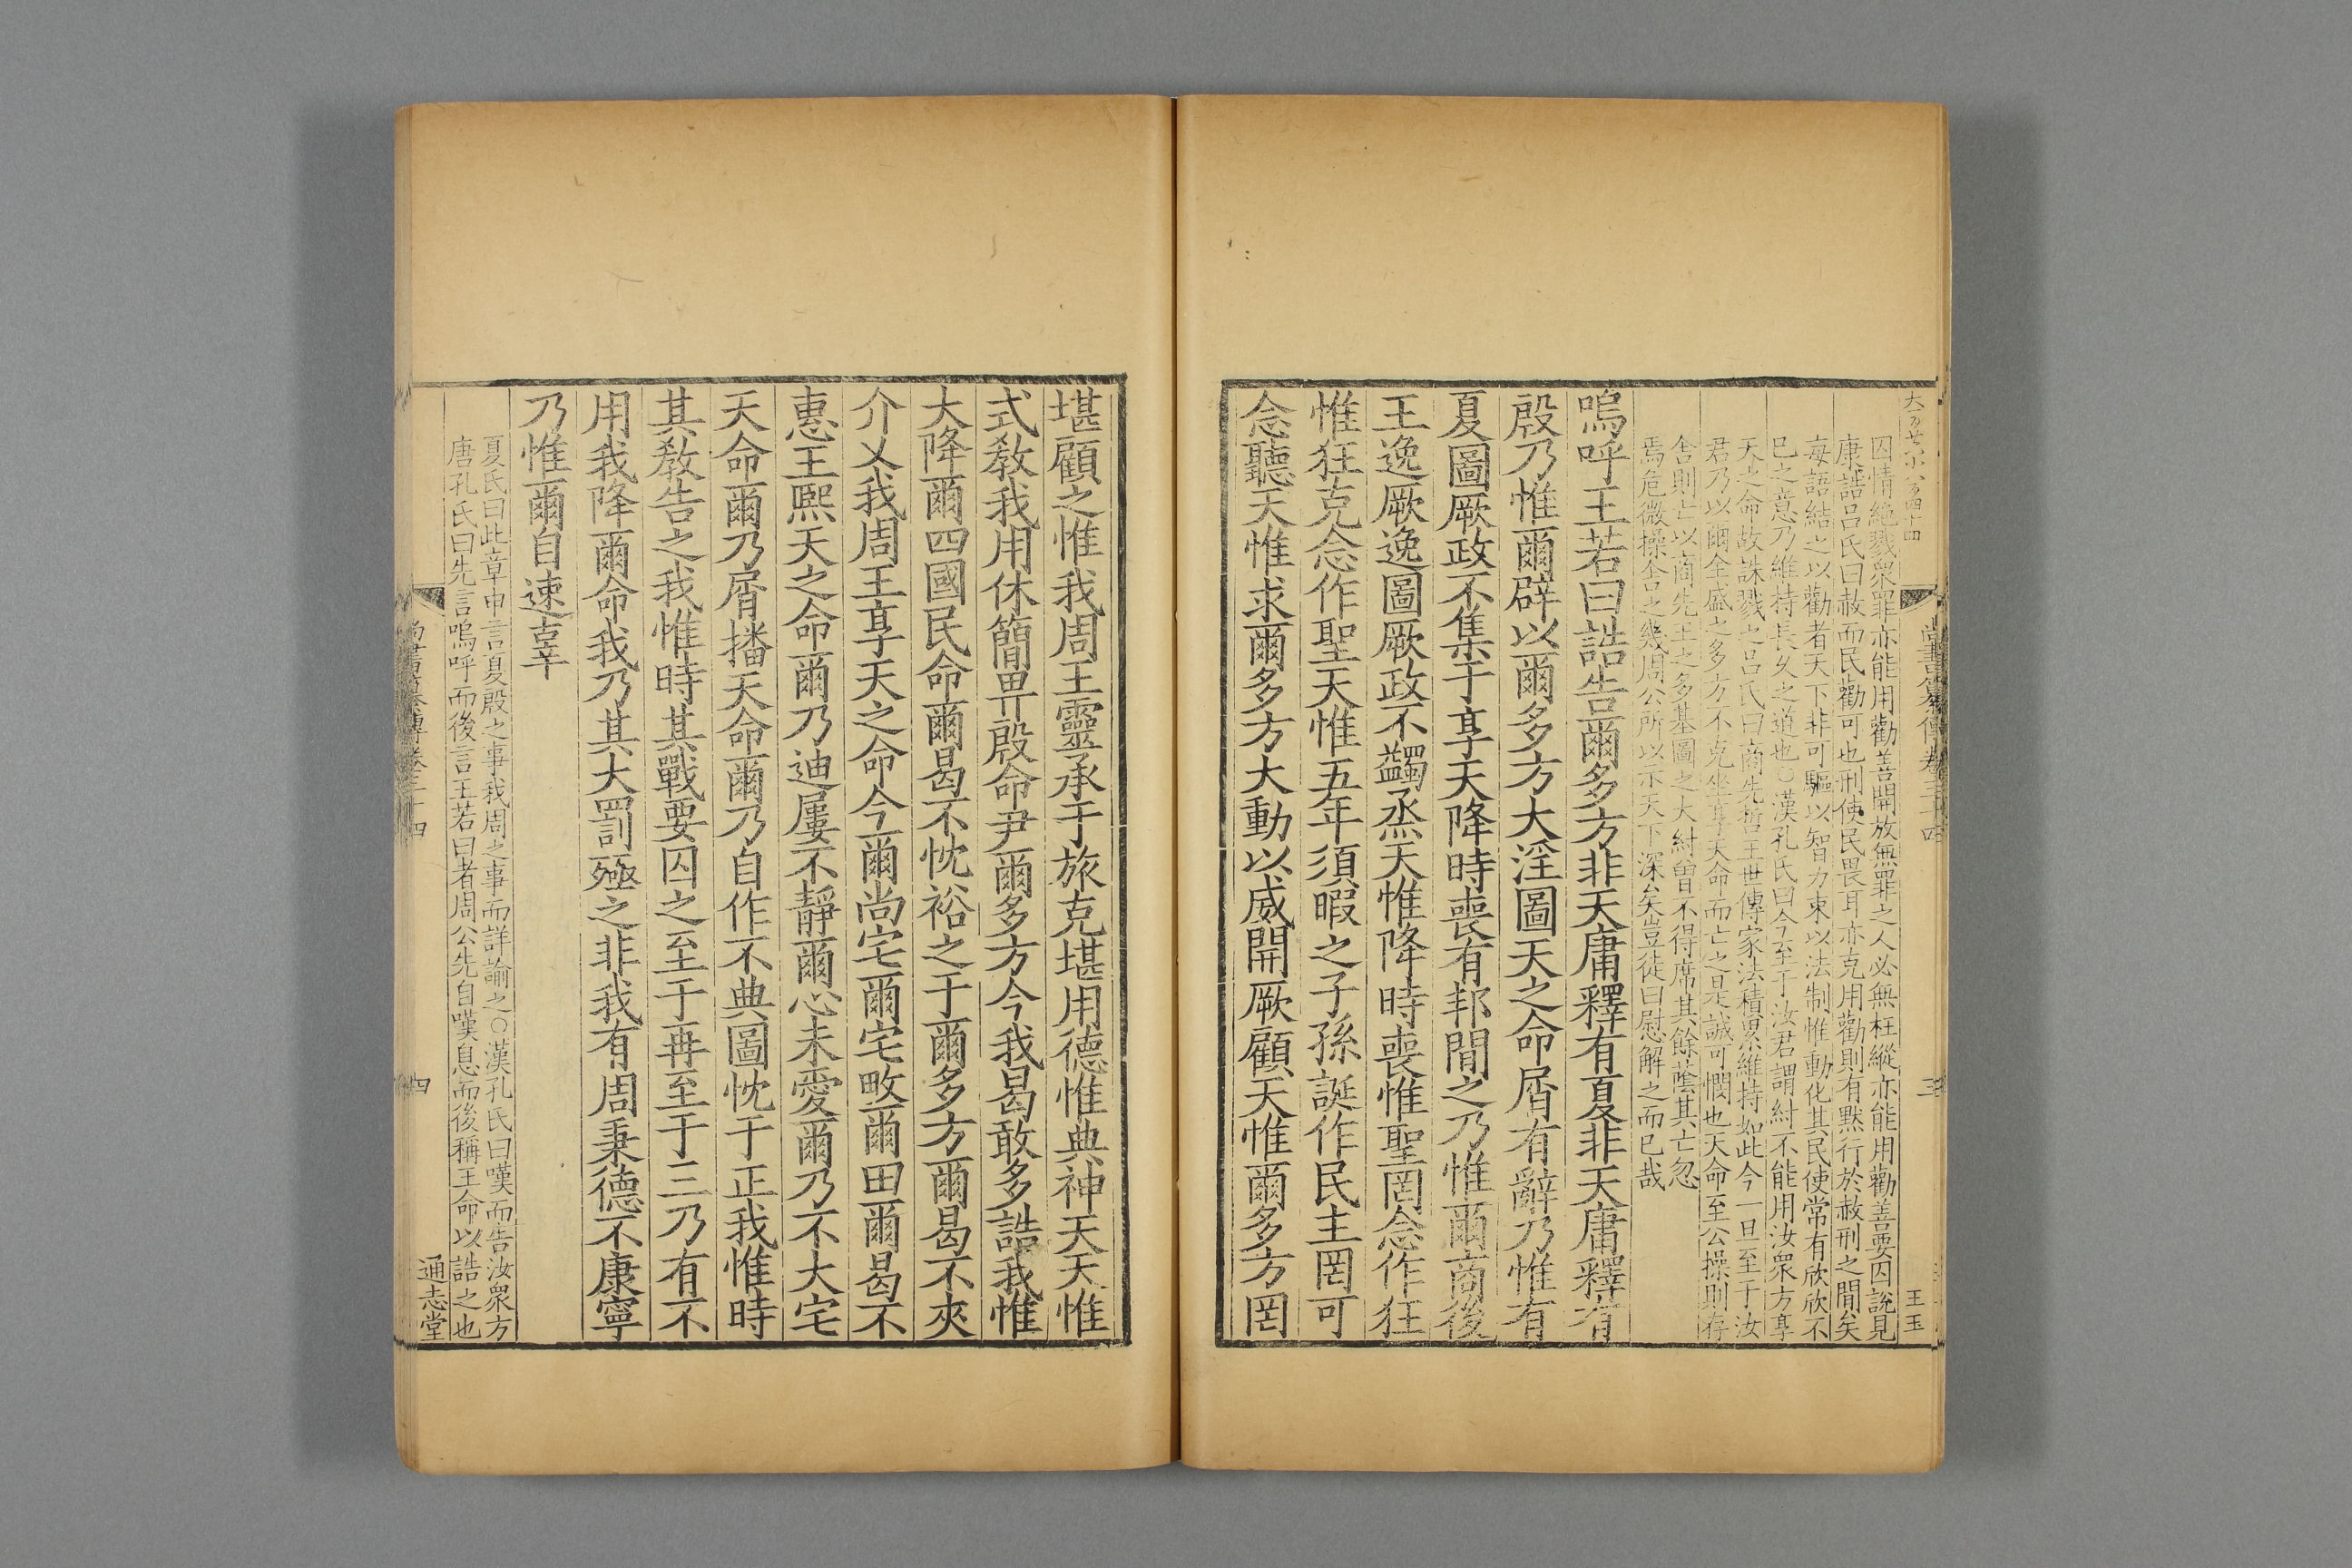 囚情絶戮衆罪亦能用勸善開放無罪之人必無枉縱亦能用勸善要囚說見
康誥呂氏曰赦而民勸可也刑使民畏耳亦克用勸則有黙行於赦刑之間矣
每語結之以勸者天下非可驅以智力束以法制惟動化其民使常有欣欣不
已之意乃維持長久之道也○漢孔氏曰今至于汝君謂紂不能用汝衆方享
天之命故誅戮之呂氏曰商先哲王世傳家法積累維持如此今一旦至于汝
君乃以爾全盛之多方不克坐享天命而亡之是誠可憫也天命至公操則存
舍則亡以商先王之多基圖之大紂曽不得席其餘蔭其亡忽
焉危微操舍之幾周公所以示天下深矣豈徒曰慰解之而已哉
嗚呼王若曰誥告爾多方非天庸釋有夏非天庸釋有
殷乃惟爾辟以爾多方大淫圖天之命屑有辭乃惟有
夏圖厥政不集于享天降時喪有邦間之乃惟爾商後
王逸厥逸圖厥政不蠲烝天惟降時喪惟聖罔念作狂
惟狂克念作聖天惟五年須暇之子孫誕作民主罔可
念聽天惟求爾多方大動以威開厥顧天惟爾多方罔
尚書纂傳卷三十四
三
王玉
堪顧之惟我周王靈承于旅克堪用德惟典神天天惟
式教我用休簡畀殷命尹爾多方今我曷敢多誥我惟
大降爾四國民命爾曷不忱裕之于爾多方爾曷不夾
介乂我周王享天之命今爾尚宅爾宅畋爾田爾曷不
惠王熙天之命爾乃迪屢不靜爾心未愛爾乃不大宅
天命爾乃屑播天命爾乃自作不典圖忱于正我惟時
其教告之我惟時其戰要囚之至于再至于三乃有不
用我降爾命我乃其大罰殛之非我有周秉德不康寧
乃惟爾自速辜
夏氏曰此章申言夏殷之事我周之事而詳諭之○漢孔氏曰嘆而告汝衆方
唐孔氏曰先言嗚呼而後言王若曰者周公先自嘆息而後稱王命以誥之也
尚書纂傳卷三十四
四
通志堂